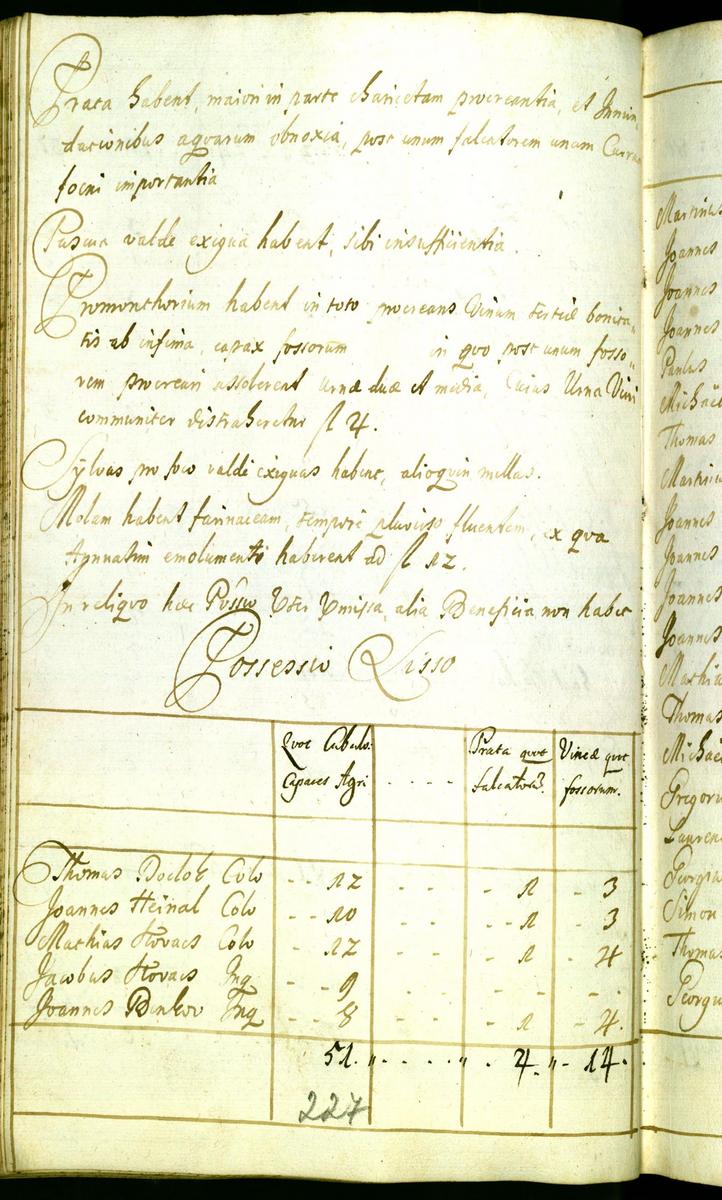 Prata habent, maiori in parte charicetam procreantia, et Innun„
dationibus aquarum obnoxia, post unum falcatorem unam Currum
foeni importantia
Pascua valde exigua habent, sibi insufficientia.
Promonthorium habent in toto procreans Vinum tertiæ bonita„
tis ab infima, capax fossorum in quo post unum fosso„
rem procreari assolerent Urnæ duæ et media, Cuius Urna Vini
communiter distraheretur fl 4.
Sylvas pro foco valde exiguas habent, alioquin nullas.
Molam habent farinaceam, tempore pluvioso fluentem, ex qua
Annuatim emolumenti haberent ad fl 12.
In reliquo hæc Posseo Uti præmissa, alia Beneficia non habet
Possessio Lisso
Quot Cubulo: Prata quot Vineæ quot
Capaces Agri . . . . falcator: fossorum.
Thomas Colo - - 12 - - - 1 - 3
Joannes Heinal Colo - - 10 - - - 1 - 3
Mathias Kovacs Colo - - 12 - - - 1 - 4
Jacobus Kovacs Inq - - 9 - - - - - .
Joannes Benkov Inq - - 8 - - - 1 - 4.
51. „ . . . . „ . 4. „ - 14.
227
Martinus
Joannes
Joannes
Joannes
Paulus
Michael
Thomas
Martinus
Joannes
Joannes
Joannes
Joannes
Mathia
Thomas
Michael
Gregori
Lauren
Georgiu
Simon
Thomas
Georgiu